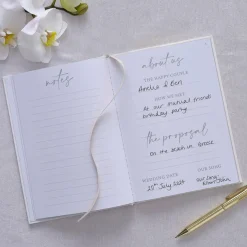 notes
about us
THE HAPPY COUPLE
Amelia & Ben
HOW WE MET
At our mutual friends
birthday party
the proposal
On the beach in Greece
WEDDING DATE
25th July 2024
OUR HOME